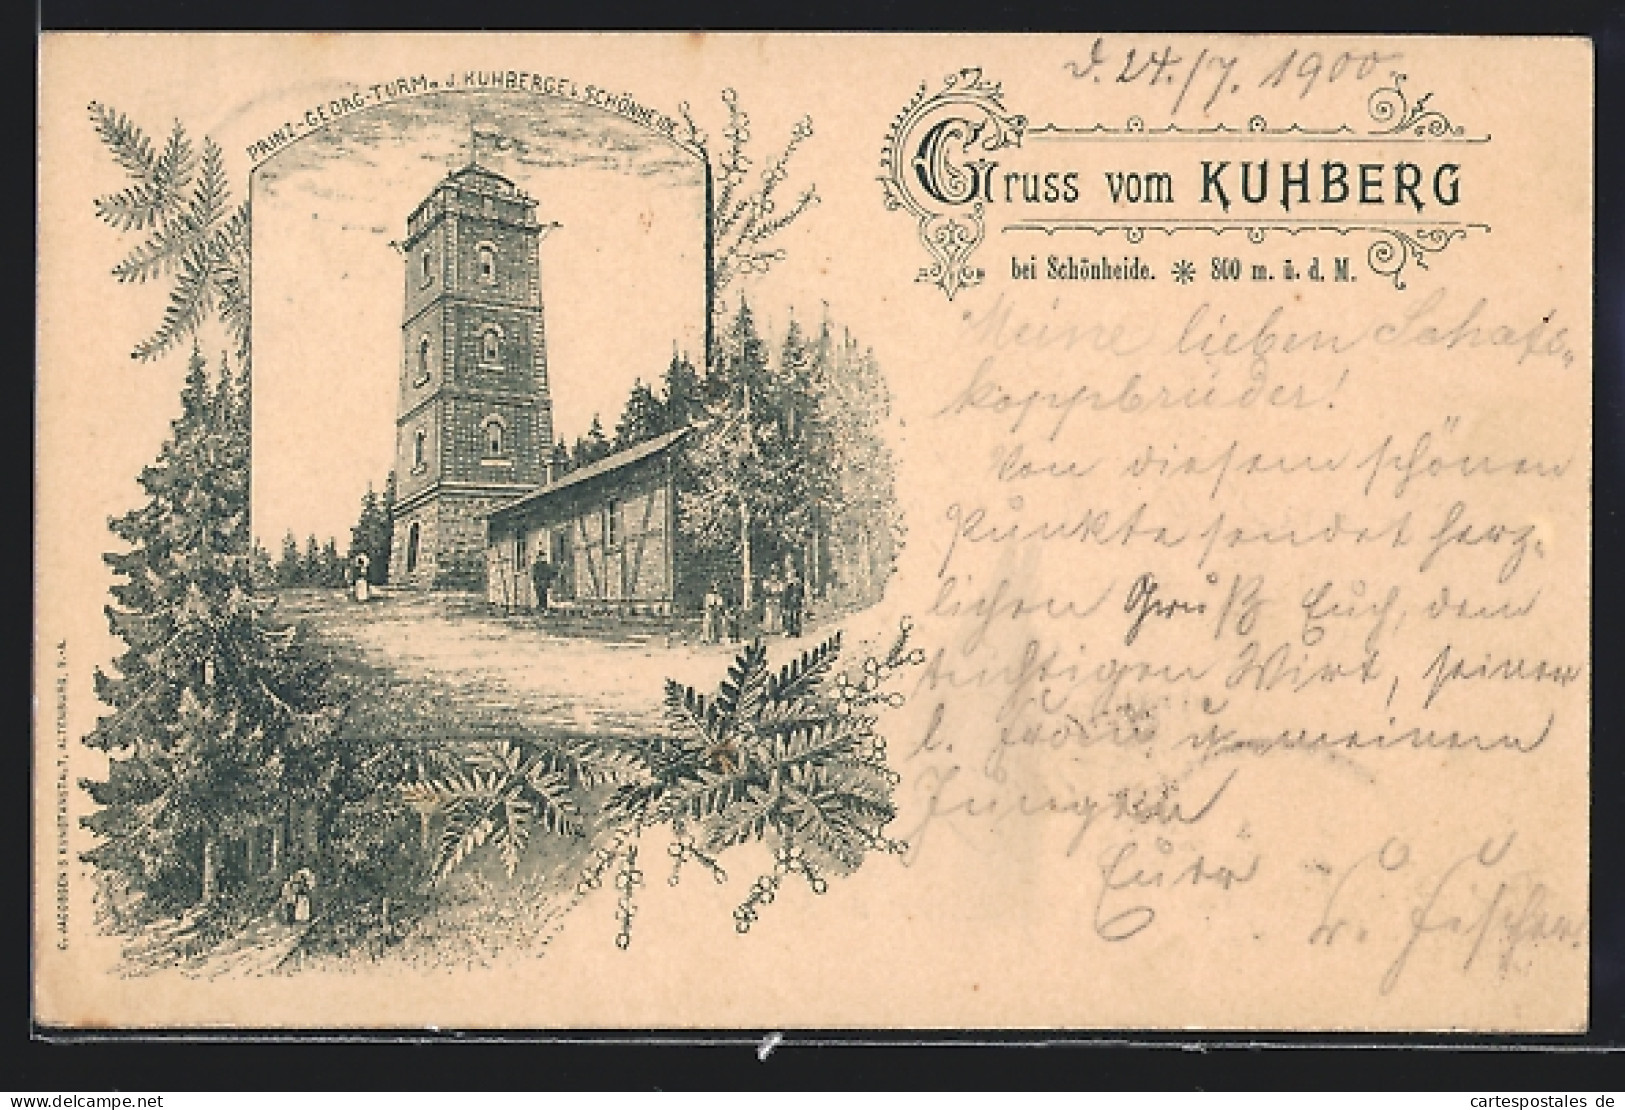 d. 24./7. 1900.
PRINZ-GEORG-TURM a. J. KUHBERGE b. SCHÖNHEIDE.
Gruss vom KUHBERG
bei Schönheide. * 800 m. ü. d. M.
Meine lieben Schafs-
koppbrüder!
Von diesem schönen
Punkte sendet herz-
lichen Gruß Euch, dem
tüchtigen Wirt, seiner
l. Frau u. meinem
Jungen
Euer
Fischer.
C. JACOBSEN'S KUNSTANSTALT, ALTENBURG, S.-A.
cartespostales de
www.delcampe.net